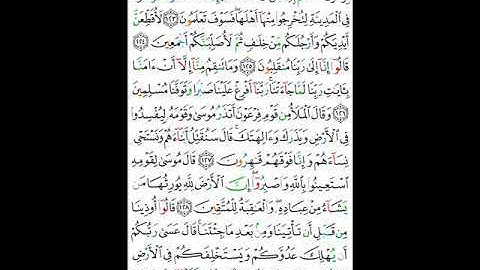 فِي ٱلْمَدِينَةِ لِتُخْرِجُوا۟ مِنْهَآ أَهْلَهَا ۖ فَسَوْفَ تَعْلَمُونَ ١٢٣ لَأُقَطِّعَنَّ
أَيْدِيَكُمْ وَأَرْجُلَكُم مِّنْ خِلَٰفٍ ثُمَّ لَأُصَلِّبَنَّكُمْ أَجْمَعِينَ ١٢٤
قَالُوٓا۟ إِنَّآ إِلَىٰ رَبِّنَا مُنقَلِبُونَ ١٢٥ وَمَا تَنقِمُ مِنَّآ إِلَّآ أَنْ ءَامَنَّا
بِـَٔايَٰتِ رَبِّنَا لَمَّا جَآءَتْنَا ۚ رَبَّنَآ أَفْرِغْ عَلَيْنَا صَبْرًا وَتَوَفَّنَا مُسْلِمِينَ
١٢٦ وَقَالَ ٱلْمَلَأُ مِن قَوْمِ فِرْعَوْنَ أَتَذَرُ مُوسَىٰ وَقَوْمَهُۥ لِيُفْسِدُوا۟
فِي ٱلْأَرْضِ وَيَذَرَكَ وَءَالِهَتَكَ ۚ قَالَ سَنُقَتِّلُ أَبْنَآءَهُمْ وَنَسْتَحْيِۦ
نِسَآءَهُمْ وَإِنَّا فَوْقَهُمْ قَٰهِرُونَ ١٢٧ قَالَ مُوسَىٰ لِقَوْمِهِ
ٱسْتَعِينُوا۟ بِٱللَّهِ وَٱصْبِرُوٓا۟ ۖ إِنَّ ٱلْأَرْضَ لِلَّهِ يُورِثُهَا مَن
يَشَآءُ مِنْ عِبَادِهِۦ ۖ وَٱلْعَٰقِبَةُ لِلْمُتَّقِينَ ١٢٨ قَالُوٓا۟ أُوذِينَا
مِن قَبْلِ أَن تَأْتِيَنَا وَمِنۢ بَعْدِ مَا جِئْتَنَا ۚ قَالَ عَسَىٰ رَبُّكُمْ
أَن يُهْلِكَ عَدُوَّكُمْ وَيَسْتَخْلِفَكُمْ فِي ٱلْأَرْضِ